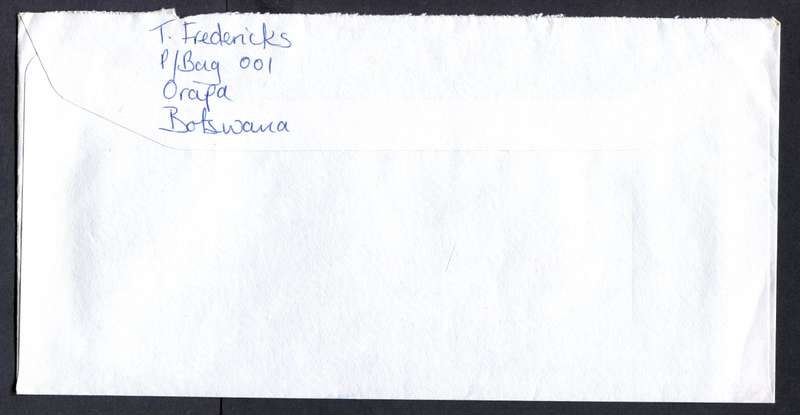 T. Fredericks
P/Bag 001
Orapa
Botswana